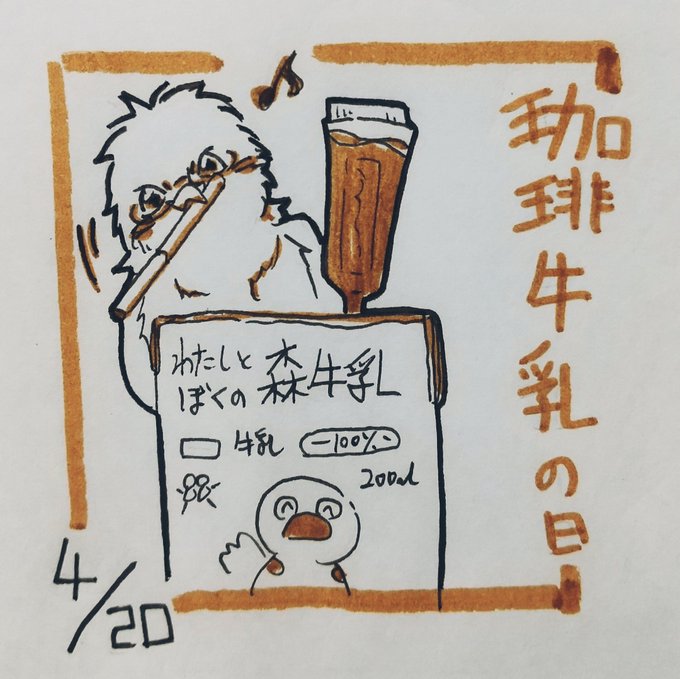 珈琲牛乳の日
わたしと
ぼくの
森牛乳
牛乳
100%
200ml
4/20